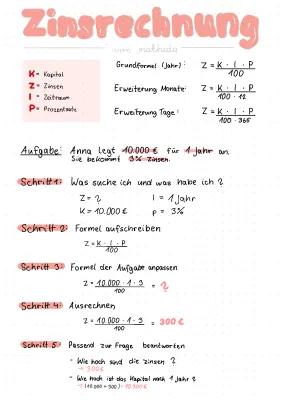 Zinsrechnung
von matheda
K = Kapital
Z = Zinsen
I = Zeitraum
P = Prozentsatz
Grundformel (Jahr): Z = K · I · P / 100
Erweiterung Monate: Z = K · I · P / 100 · 12
Erweiterung Tage: Z = K · I · P / 100 · 365
Aufgabe: Anna legt 10.000 € für 1 Jahr an.
Sie bekommt 3% Zinsen.
Schritt 1: Was suche ich und was habe ich ?
Z = ? I = 1 Jahr
K = 10.000 € p = 3%
Schritt 2: Formel aufschreiben
Z = K · I · P / 100
Schritt 3: Formel der Aufgabe anpassen
Z = 10.000 · 1 · 3 / 100 = ?
Schritt 4: Ausrechnen
Z = 10.000 · 1 · 3 / 100 = 300 €
Schritt 5: Passend zur Frage beantworten
- Wie hoch sind die Zinsen ?
→ 300 €
- Wie hoch ist das Kapital nach 1 Jahr ?
→ (10.000 + 300) = 10.300 €